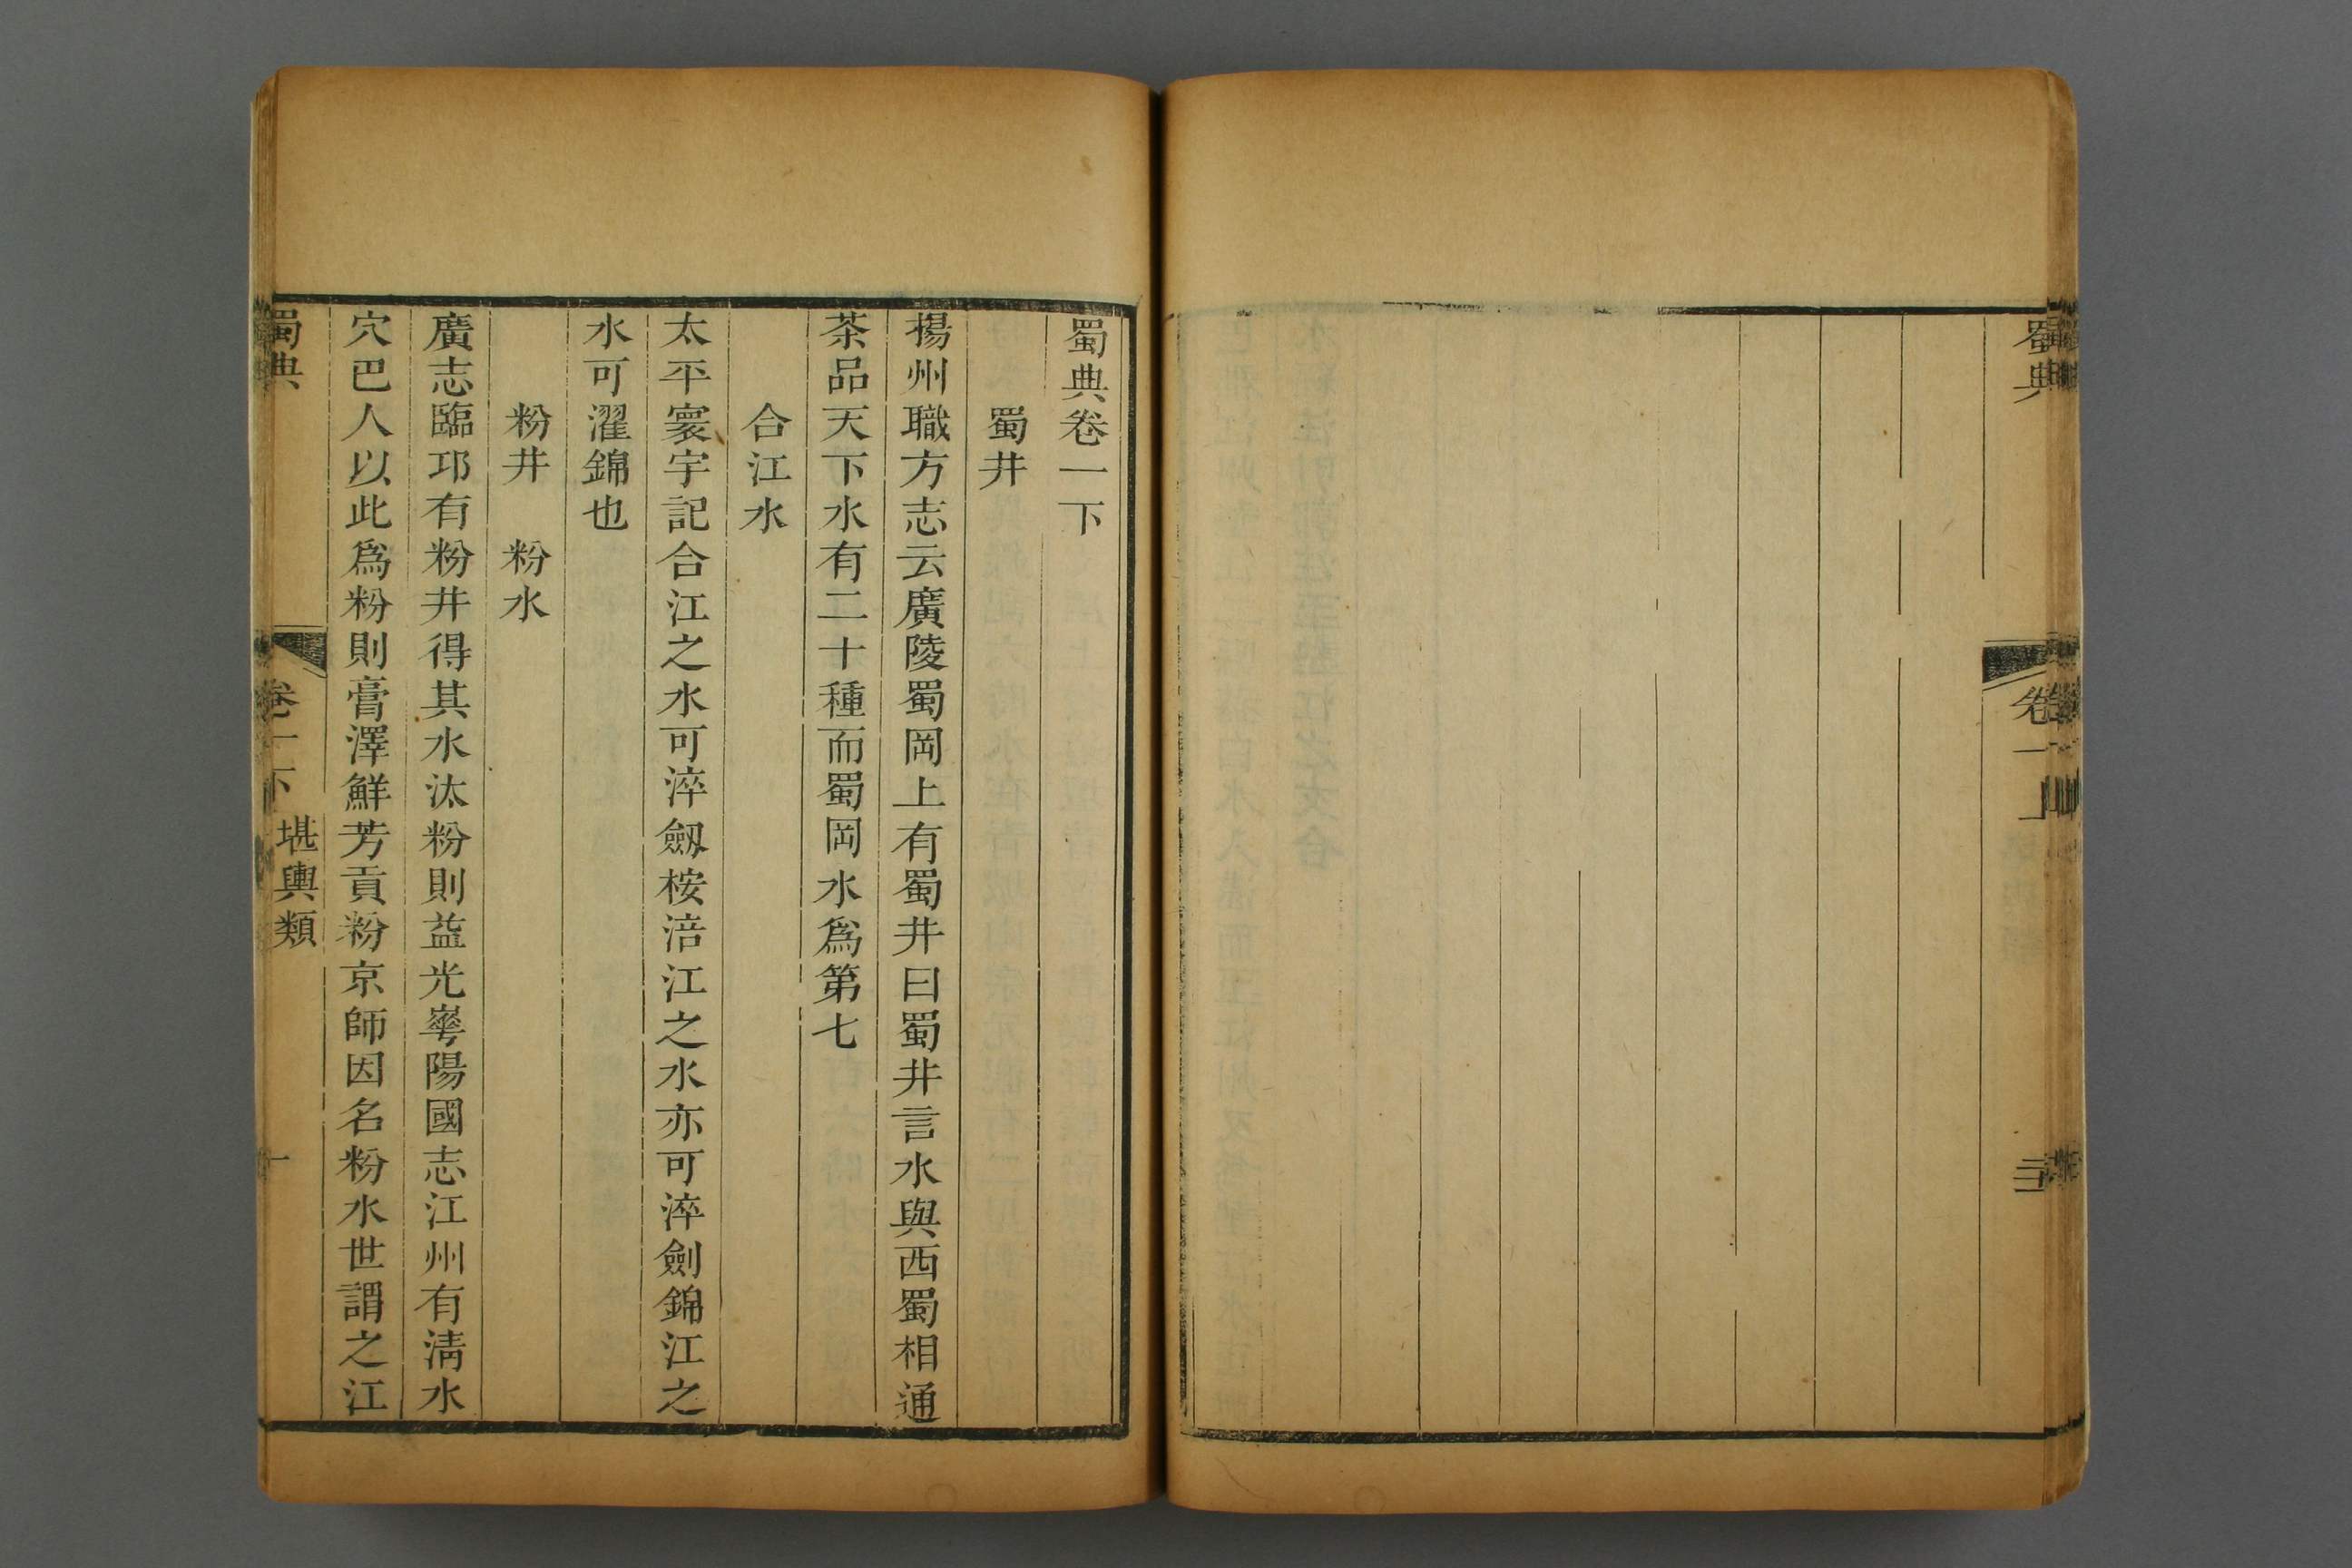 蜀典
卷一上
蜀典卷一下
蜀井
揚州職方志云廣陵蜀岡上有蜀井曰蜀井言水與西蜀相通
茶品天下水有二十種而蜀岡水爲第七
合江水
太平寰宇記合江之水可淬劔桉涪江之水亦可淬劍錦江之
水可濯錦也
粉井　粉水
廣志臨邛有粉井得其水汰粉則益光崋陽國志江州有淸水
穴巴人以此爲粉則膏澤鮮芳貢粉京師因名粉水世謂之江
蜀典
卷一下
堪輿類
一